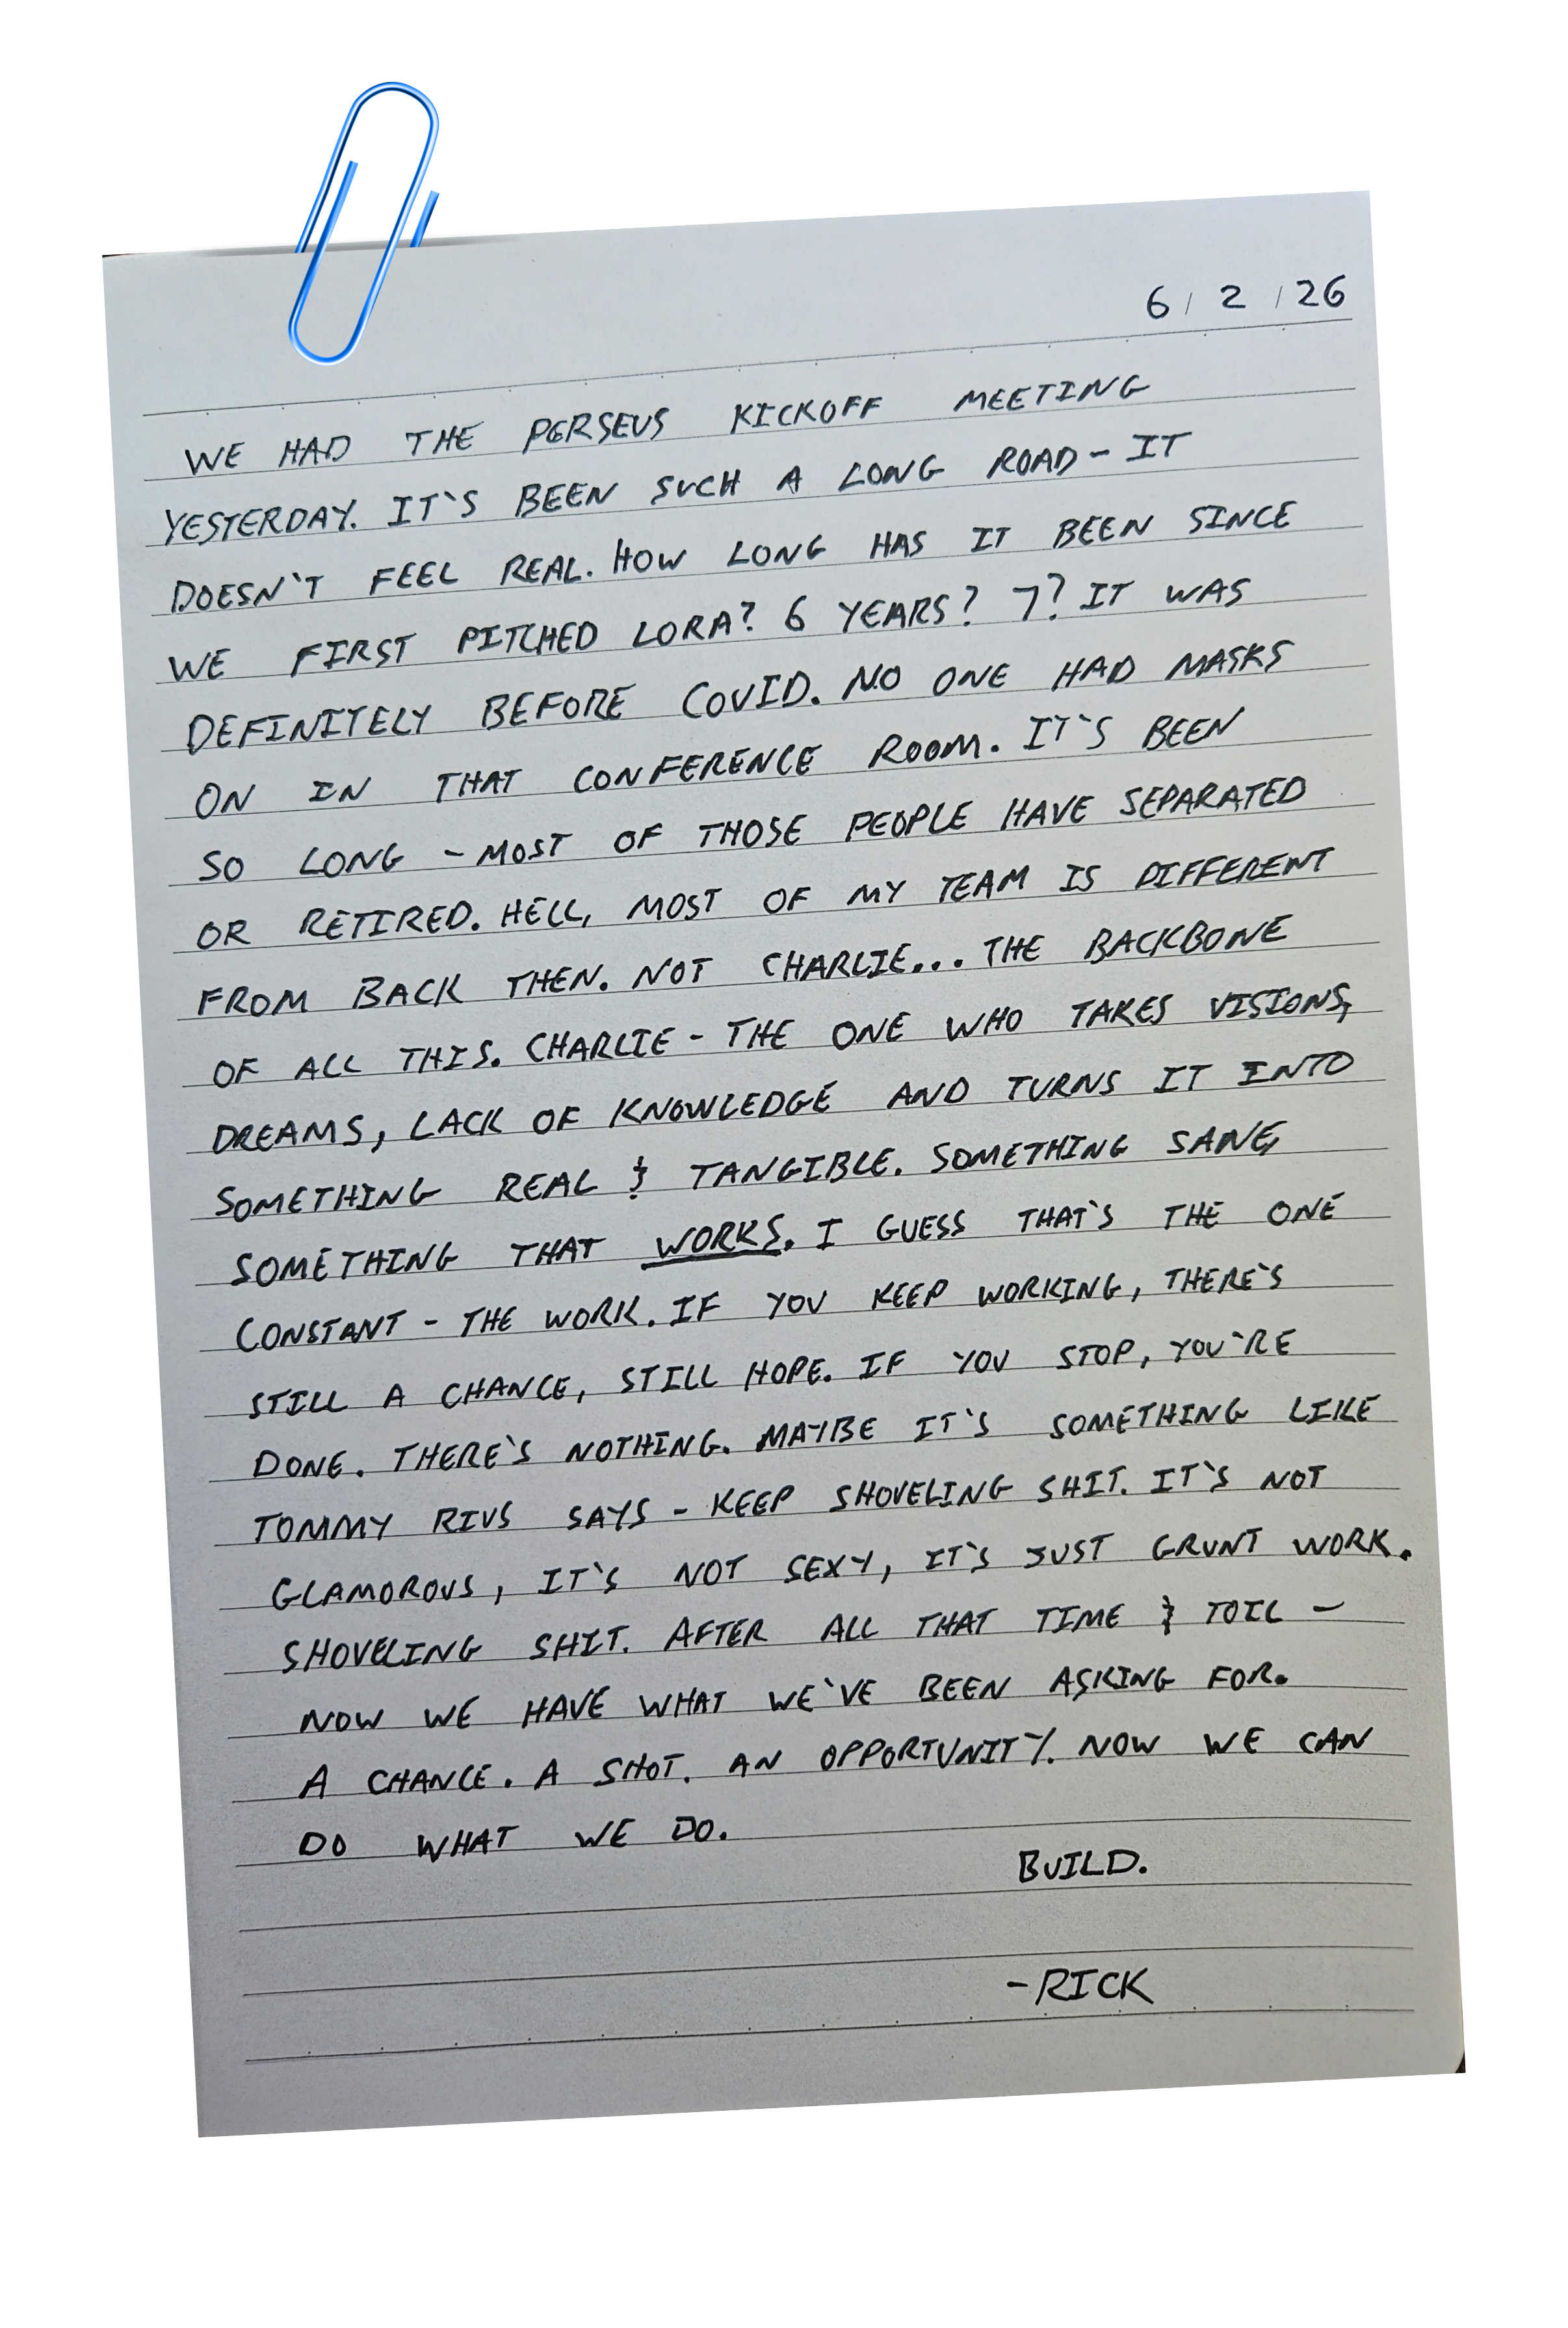 6/2/26
WE HAD THE PERSEUS KICKOFF MEETING
YESTERDAY. IT'S BEEN SUCH A LONG ROAD - IT
DOESN'T FEEL REAL. HOW LONG HAS IT BEEN SINCE
WE FIRST PITCHED LORA? 6 YEARS? 7? IT WAS
DEFINITELY BEFORE COVID. NO ONE HAD MASKS
ON IN THAT CONFERENCE ROOM. IT'S BEEN
SO LONG - MOST OF THOSE PEOPLE HAVE SEPARATED
OR RETIRED. HELL, MOST OF MY TEAM IS DIFFERENT
FROM BACK THEN. NOT CHARLIE... THE BACKBONE
OF ALL THIS. CHARLIE - THE ONE WHO TAKES VISIONS,
DREAMS, LACK OF KNOWLEDGE AND TURNS IT INTO
SOMETHING REAL & TANGIBLE. SOMETHING SANE,
SOMETHING THAT WORKS. I GUESS THAT'S THE ONE
CONSTANT - THE WORK. IF YOU KEEP WORKING, THERE'S
STILL A CHANCE, STILL HOPE. IF YOU STOP, YOU'RE
DONE. THERE'S NOTHING. MAYBE IT'S SOMETHING LIKE
TOMMY RIVS SAYS - KEEP SHOVELING SHIT. IT'S NOT
GLAMOROUS, IT'S NOT SEXY, IT'S JUST GRUNT WORK.
SHOVELING SHIT. AFTER ALL THAT TIME & TOIL -
NOW WE HAVE WHAT WE'VE BEEN ASKING FOR.
A CHANCE. A SHOT. AN OPPORTUNITY. NOW WE CAN
DO WHAT WE DO.
BUILD.
-RICK